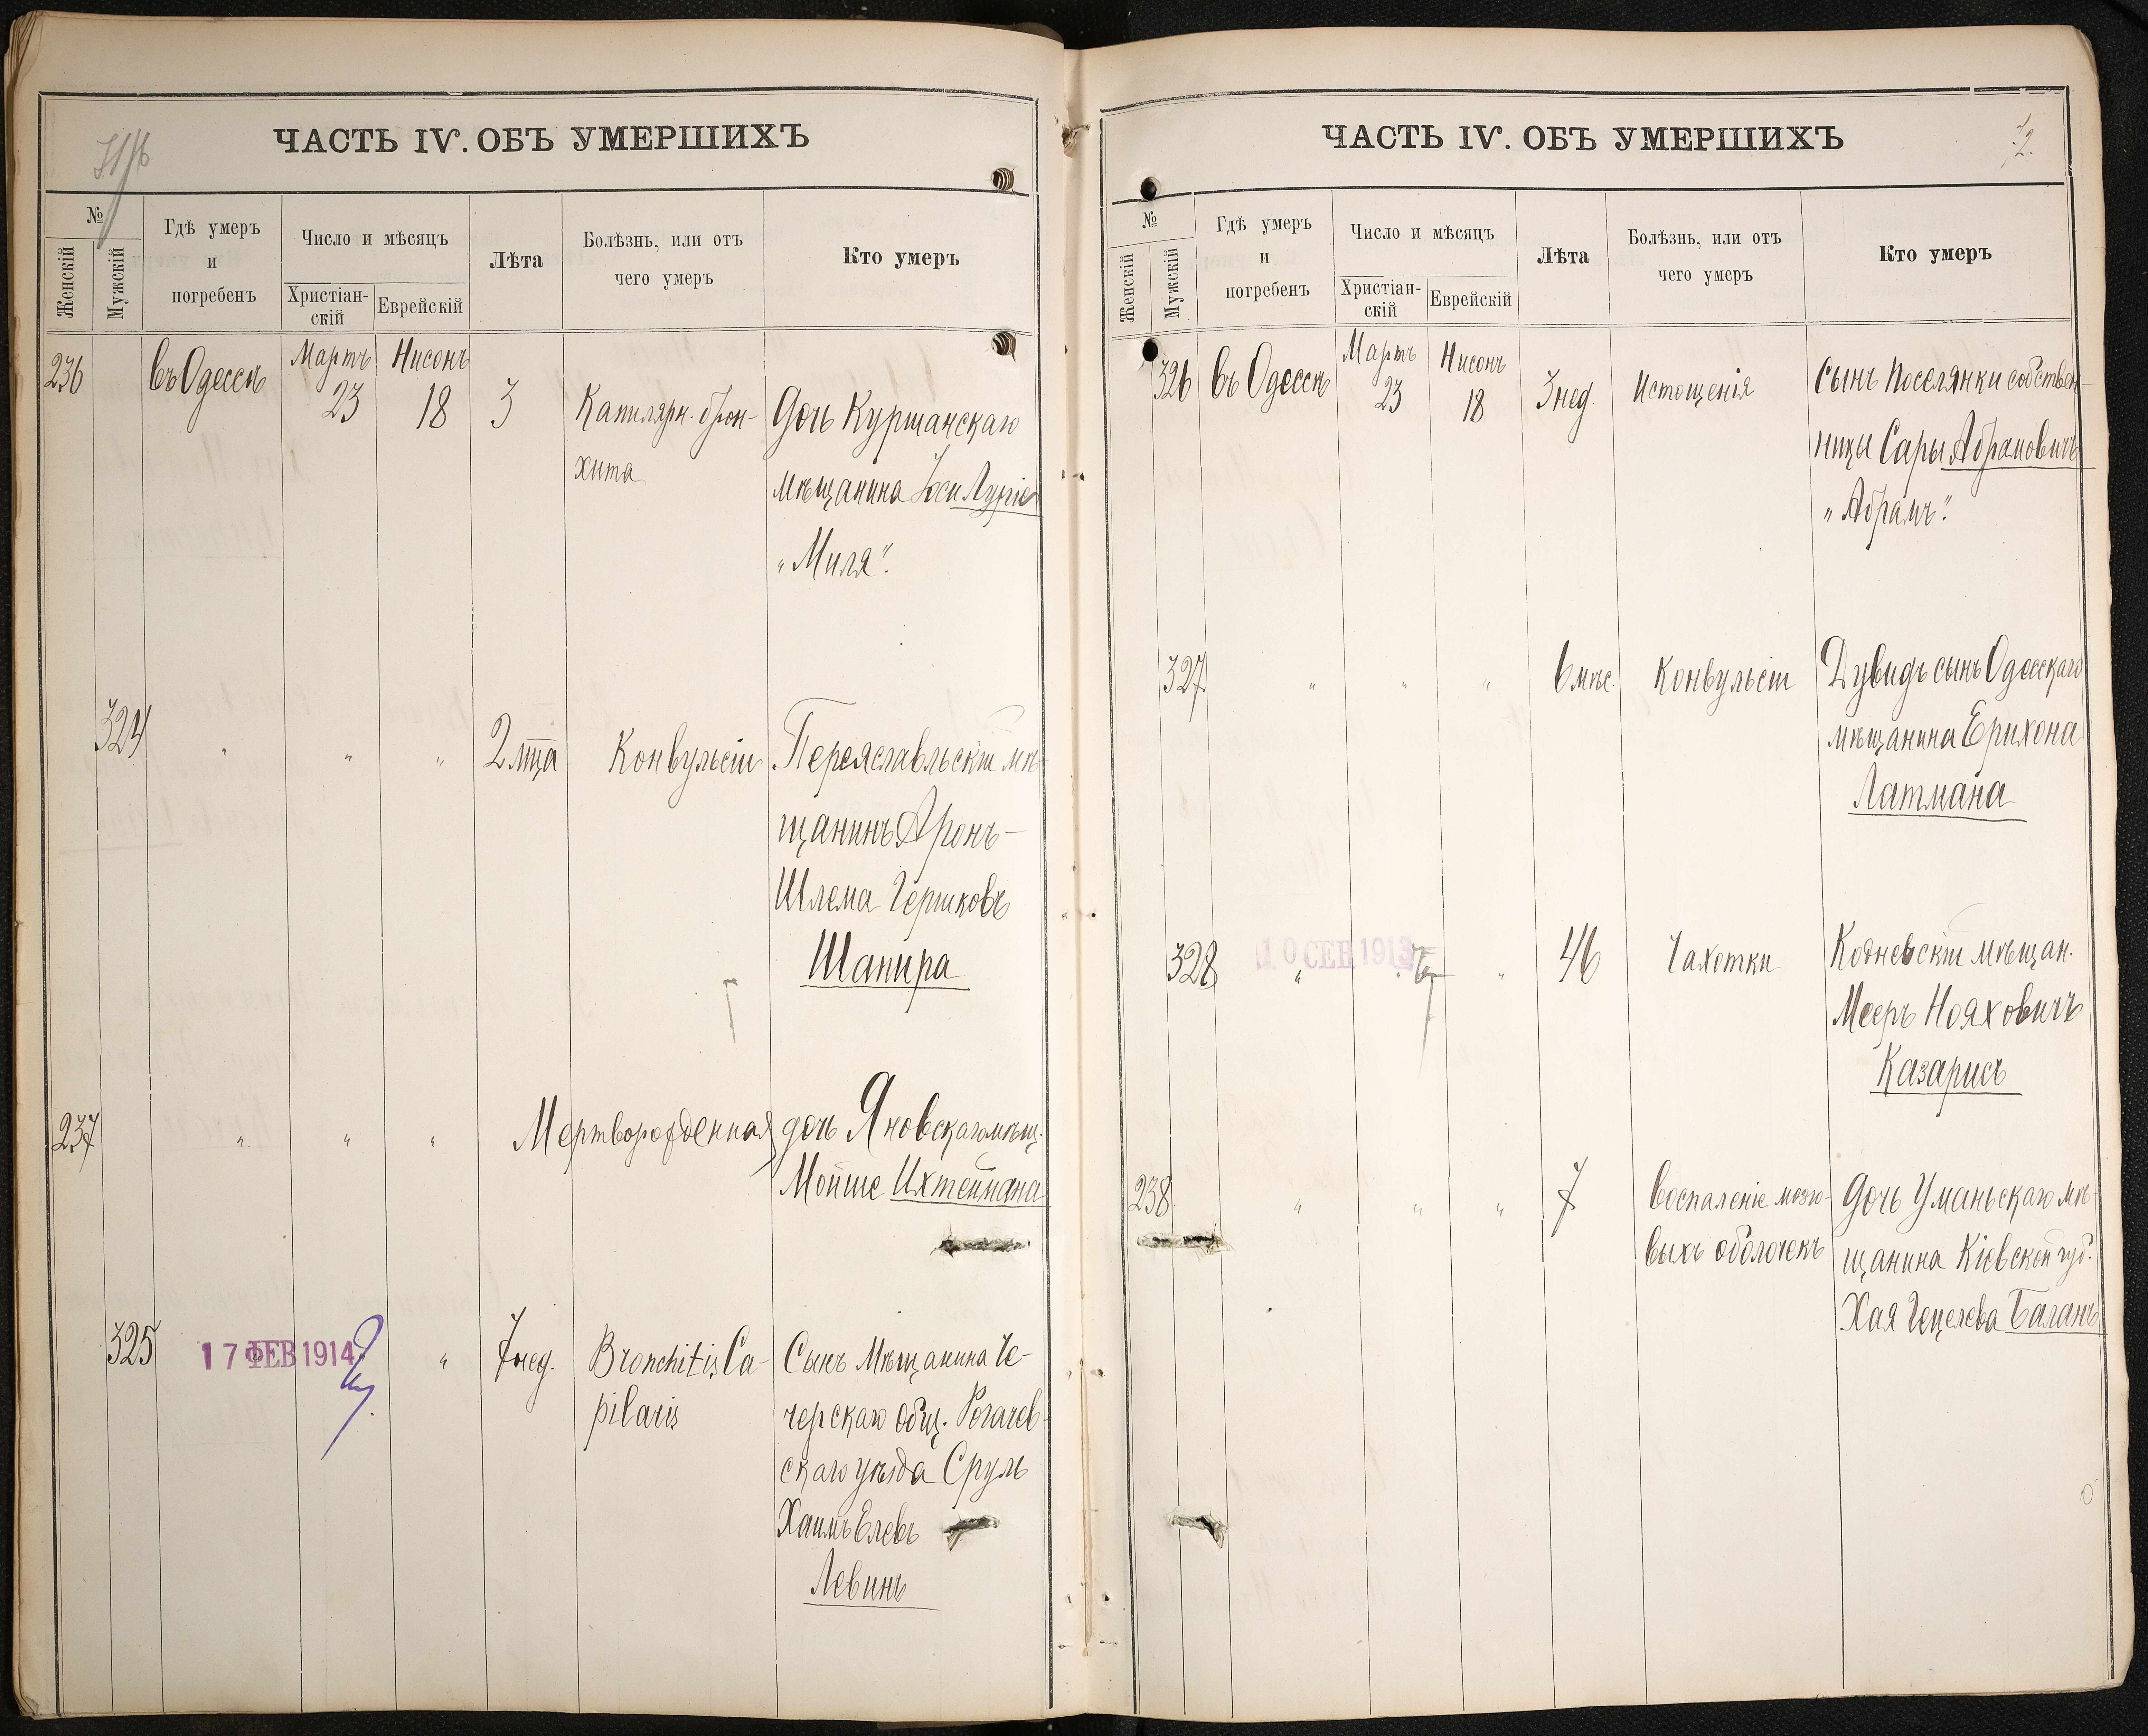 ЧАСТЬ IV. ОБЪ УМЕРШИХЪ
№
Женскій
Мужскій
Гдѣ умеръ
и
погребенъ
Число и мѣсяцъ
Христіан-
скій
Еврейскій
Лѣта
Болѣзнь, или отъ
чего умеръ
Кто умеръ
236 въ Одессѣ Мартъ 23 Нисонъ 18 3 Капилярн. брон-
хита
Дочь Куршанскаго
мѣщанина Іоси Луріе
„Миля".
324 " " " 2 мца Конвульсіи Переяславльскій мѣ-
щанинъ Аронъ-
Шлема Гершковъ
Шапира
237 " " " Мертворожденная дочь Яновскаго мѣщ.
Мойше Ихтеймана
325 17 ФЕВ 1914 " 7 нед. Bronchitis Ca-
pilaris
Сынъ Мѣщанина Че-
черскаго общ. Рогачев-
скаго уѣзда Сруль
Хаимъ Елевъ
Левинъ
ЧАСТЬ IV. ОБЪ УМЕРШИХЪ
72
№
Женскій
Мужскій
Гдѣ умеръ
и
погребенъ
Число и мѣсяцъ
Христіан-
скій
Еврейскій
Лѣта
Болѣзнь, или отъ
чего умеръ
Кто умеръ
326 въ Одессѣ Мартъ 23 Нисонъ 18 3 нед. Истощенія
Сынъ поселянки собствен-
ницы Сары Абрамовичъ
„Абрамъ".
327 " " " 6 мѣс. Конвульсіи Дувидъ сынъ Одесскаго
мѣщанина Ерихона
Латмана
328 10 СЕН 1913 " " " 46 Чахотки Кодневскій мѣщан.
Мееръ Нояховичъ
Казарисъ
238 " " " 7 Воспаленіе мозго-
выхъ оболочекъ
Дочь Уманьскаго мѣ-
щанина Кіевской губ.
Хая Гецелева Баланъ